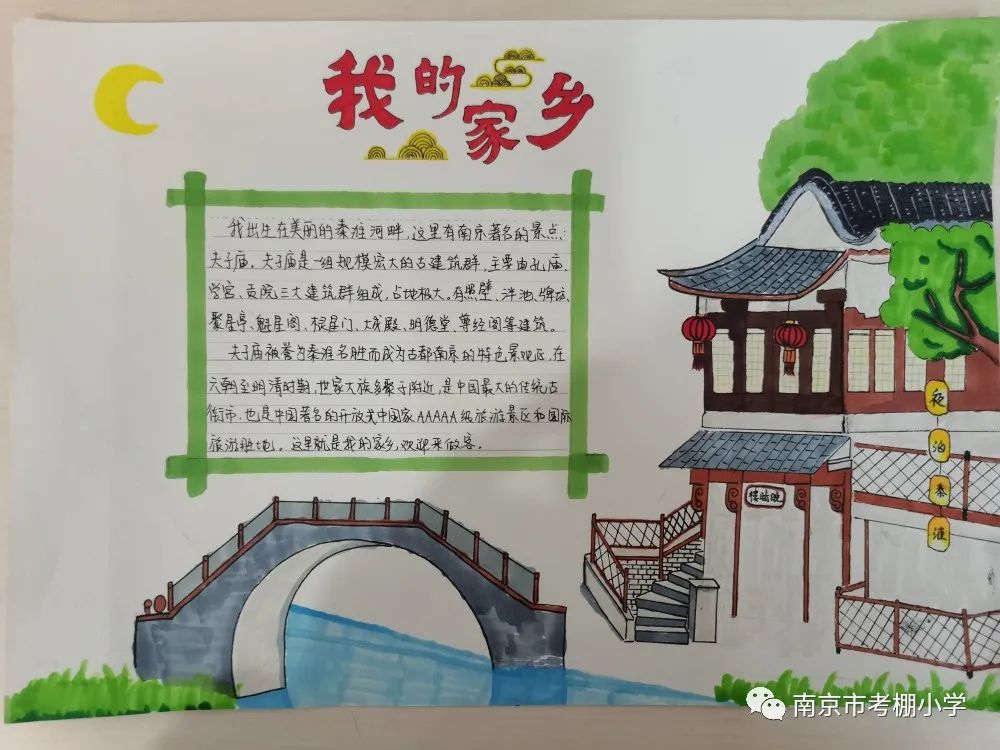 我的家乡
我出生在美丽的秦淮河畔,这里有南京著名的景点:
夫子庙。夫子庙是一组规模宏大的古建筑群,主要由孔庙、
学宫、贡院三大建筑群组成,占地极大。有照壁、泮池、牌坊、
聚星亭、魁星阁、棂星门、大成殿、明德堂、尊经阁等建筑。
夫子庙被誉为秦淮名胜而成为古都南京的特色景观区,在
六朝至明清时期,世家大族多聚于附近,是中国最大的传统古
街市,也是中国著名的开放式中国家AAAAA级旅游景区和国际
旅游胜地。这里就是我的家乡,欢迎来做客。
夜泊秦淮
南京市考棚小学